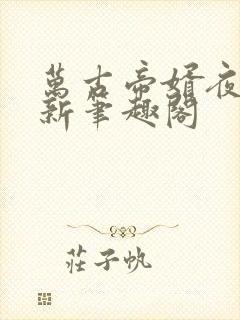 萬古帝婿夜
新筆趣閣
莊子帆